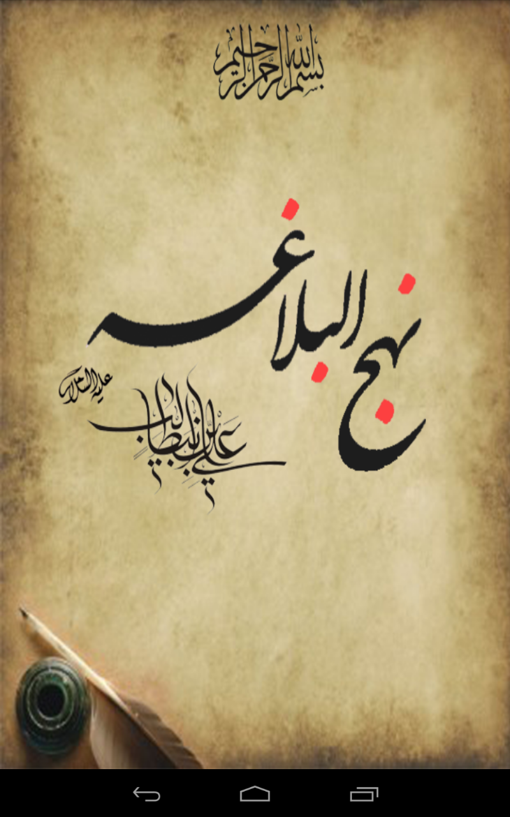 بسم الله الرحمن الرحیم
نهج البلاغه
علي بن ابيطالب
علیه السلام